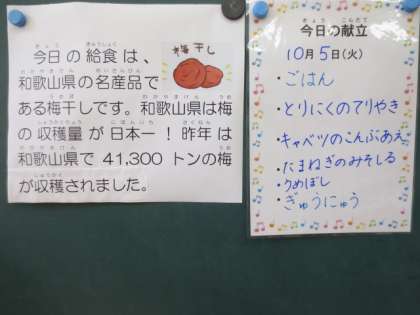 今日の給食は、
梅干し
和歌山県の名産品で
ある梅干しです。和歌山県は梅
の収穫量が日本一！昨年は
和歌山県で 41,300 トンの梅
が収穫されました。
今日の献立
10月5日(火)
・ごはん
・とりにくのてりやき
・キャベツのこんぶあえ
・たまねぎのみそしる
・うめぼし
・ぎゅうにゅう